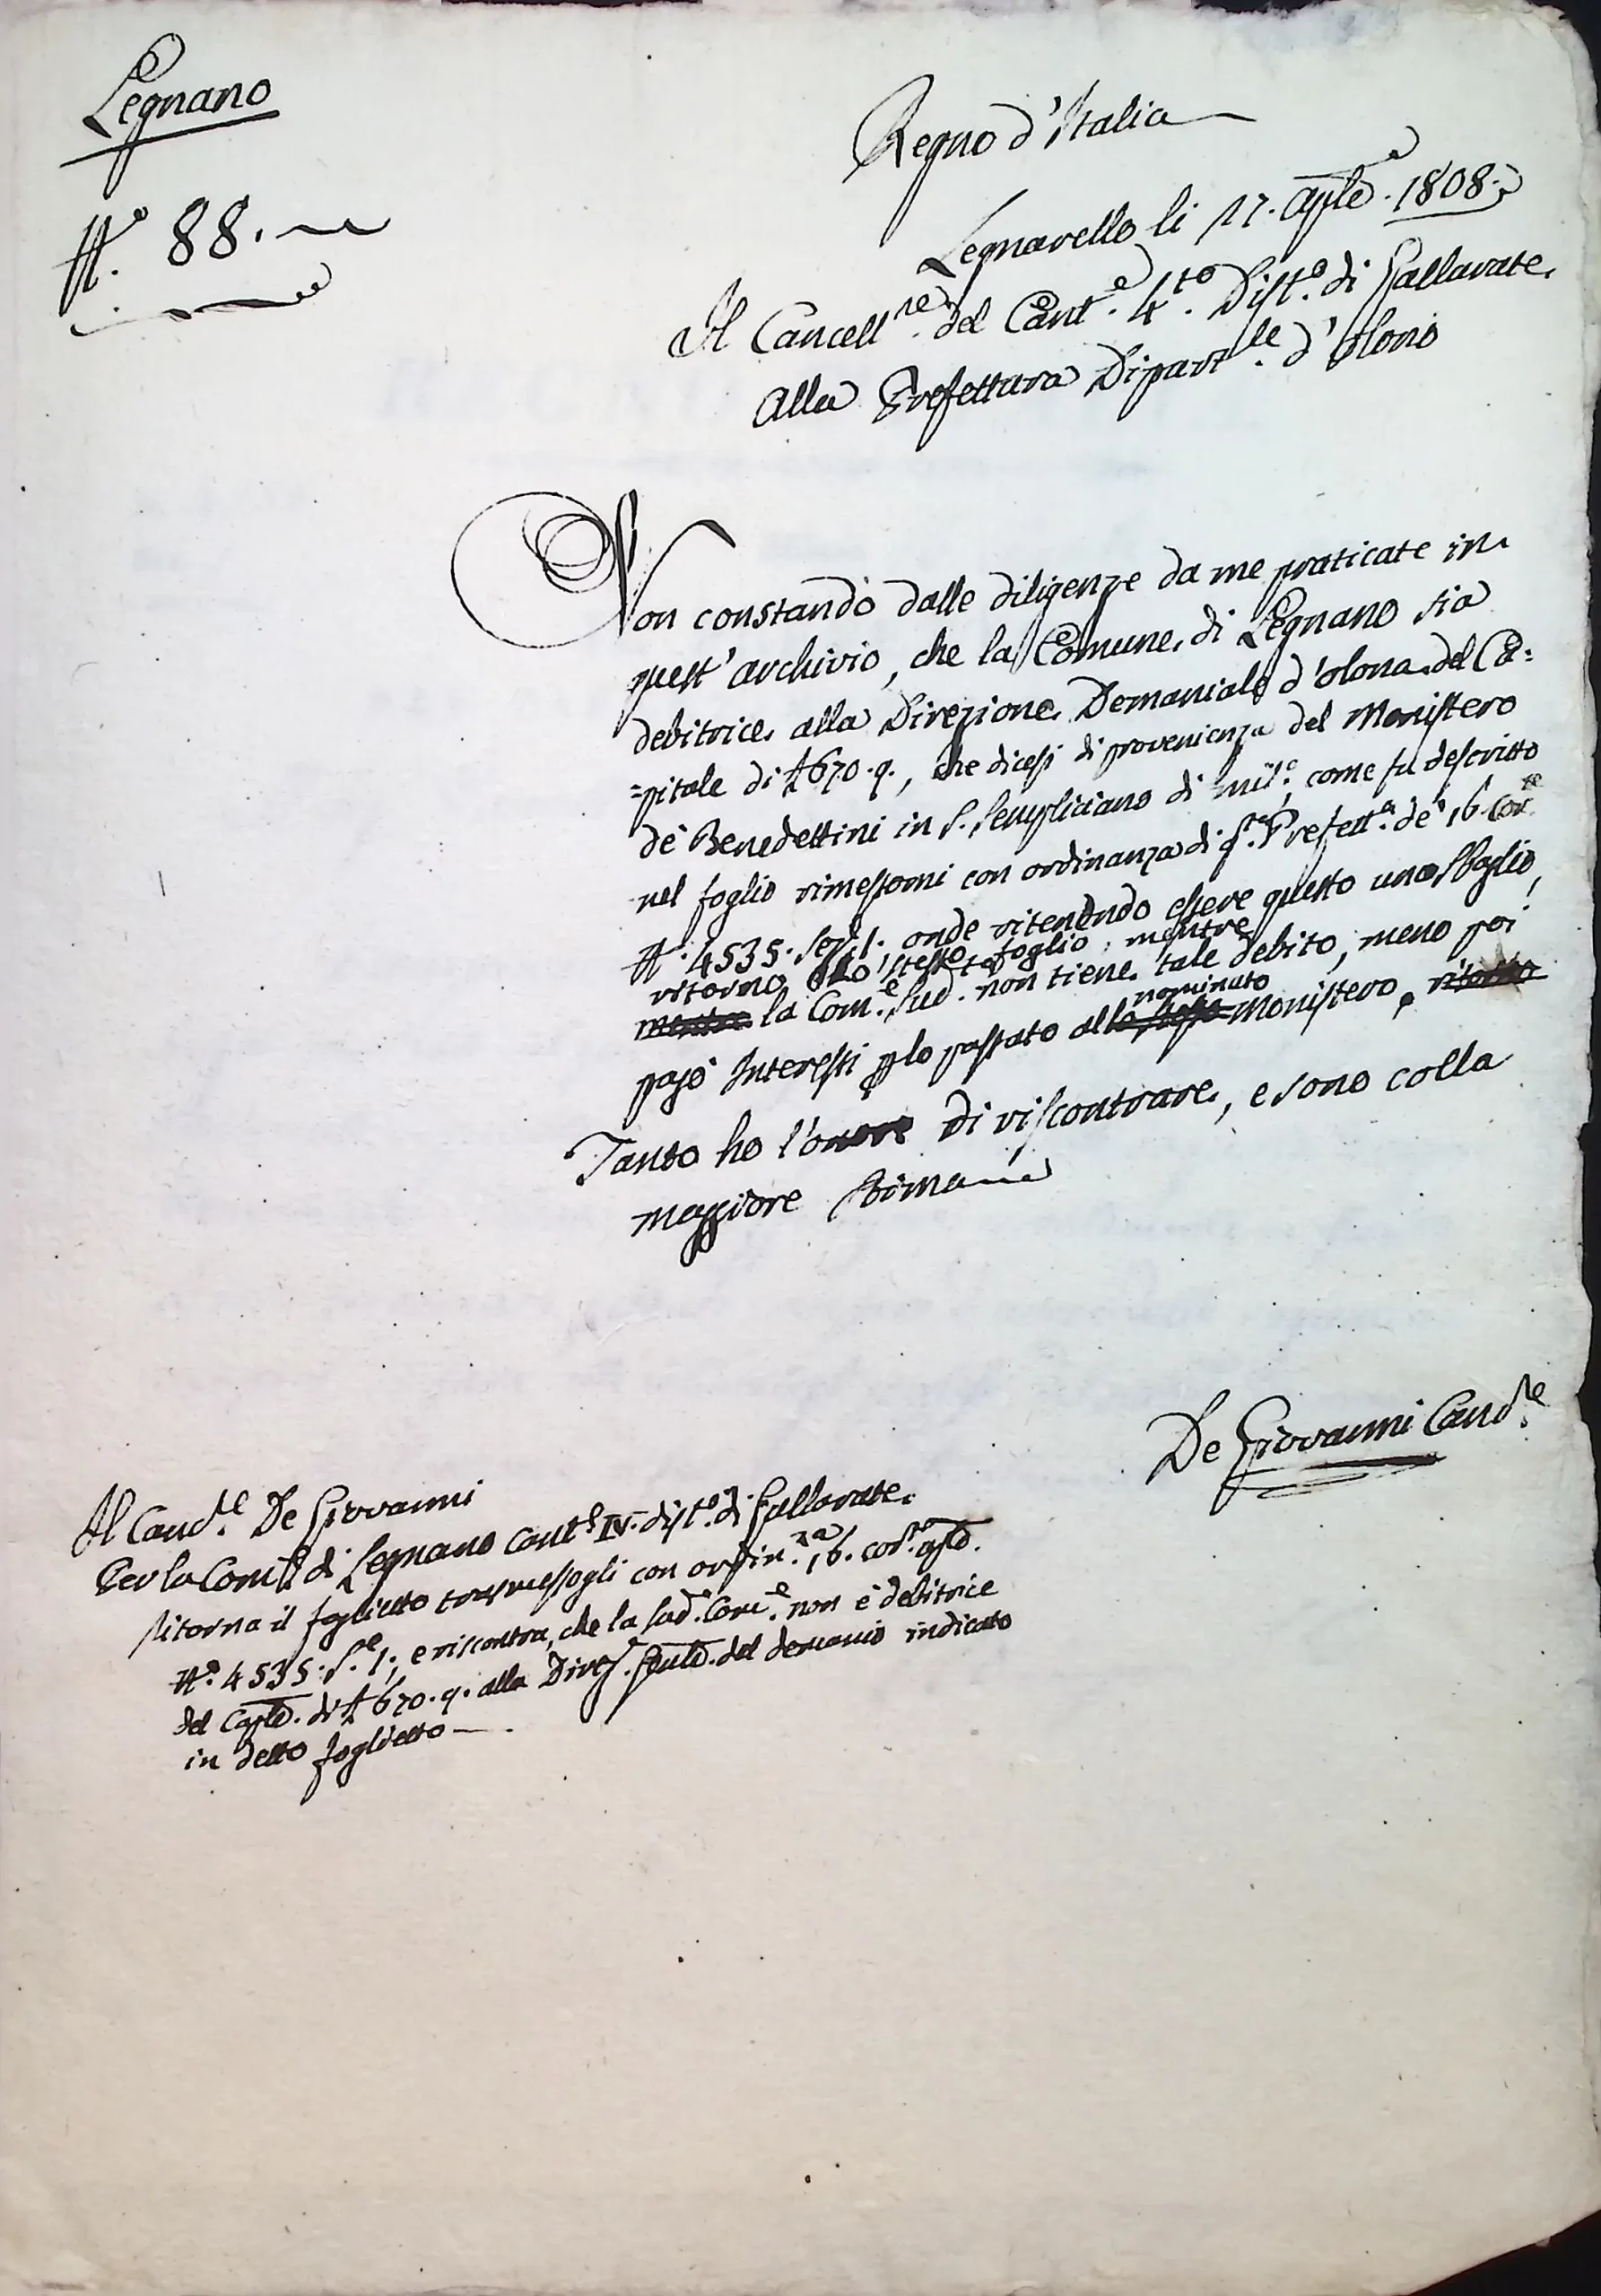 Legnano
N.° 88.
Regno d'Italia
Legnarello li 17. Aple. 1808.
Il Cancell.re del Cant.e 4.to Dist.o di Gallarate
Alla Prefettura Dipart.le d'Olona
Non constando dalle diligenze da me praticate in
quest'archivio, che la Comune di Legnano sia
debitrice alla Direzione Demaniale d'Olona del Ca=
=pitale di £ 670. 9., che dicesi di provenienza del Monistero
de' Benedettini in S. Simpliciano di Mil.o, come fu descritto
nel foglio rimessomi con ordinanza di q.ta Prefett.a de' 16. Cor.te
N.° 4535. Sez. 1. onde ritenendo essere questo uno sbaglio,
ritorno lo stesso foglio, mentre
mentre la Com.e sud.ta non tiene tale debito, meno poi
nominato
pagò Interessi plo passato allo stesso Monistero, ritorno
Tanto ho l'onore di riscontrare, e sono colla
maggiore stima
De Giovanni Canc.re
Il Canc.re De Giovanni
Per la Com.e di Legnano Cant.e IV. dist.o di Gallarate
Ritorna il foglietto trasmessogli con ordin.za 16. cor.te Aple.
N.° 4535. S.e 1., e riscontra, che la sud.a Com.e non è debitrice
del Caple. di £ 670. 9. alla Direz.e Genle. del demanio indicato
in detto foglietto